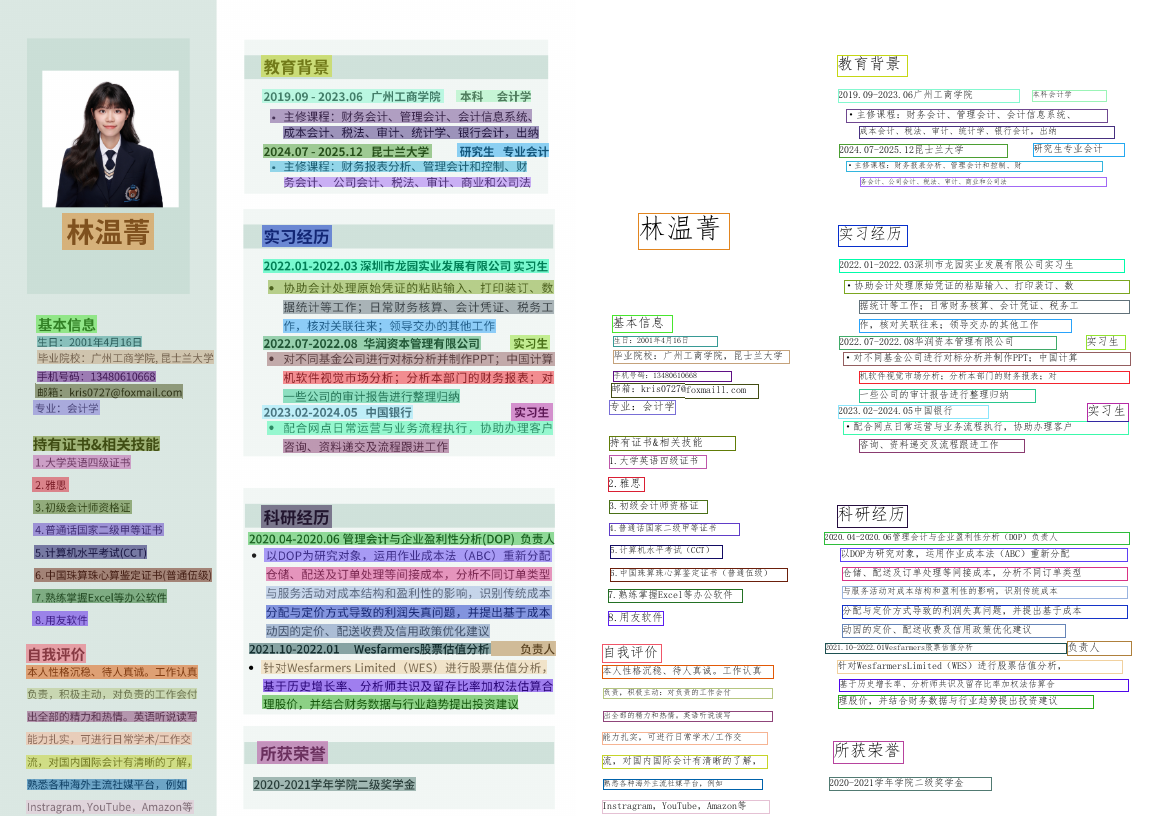 林温菁
基本信息
生日：2001年4月16日
毕业院校：广州工商学院, 昆士兰大学
手机号码：13480610668
邮箱：kris0727@foxmail.com
专业：会计学
持有证书&相关技能
1.大学英语四级证书
2.雅思
3.初级会计师资格证
4.普通话国家二级甲等证书
5.计算机水平考试(CCT)
6.中国珠算珠心算鉴定证书(普通伍级)
7.熟练掌握Excel等办公软件
8.用友软件
自我评价
本人性格沉稳、待人真诚。工作认真
负责，积极主动，对负责的工作会付
出全部的精力和热情。英语听说读写
能力扎实，可进行日常学术/工作交
流，对国内国际会计有清晰的了解，
熟悉各种海外主流社媒平台，例如
Instragram, YouTube，Amazon等
教育背景
2019.09 - 2023.06 广州工商学院 本科 会计学
• 主修课程：财务会计、管理会计、会计信息系统、
成本会计、税法、审计、统计学、银行会计，出纳
2024.07 - 2025.12 昆士兰大学 研究生 专业会计
• 主修课程：财务报表分析、管理会计和控制、财
务会计、 公司会计、税法、审计、商业和公司法
实习经历
2022.01-2022.03 深圳市龙园实业发展有限公司 实习生
• 协助会计处理原始凭证的粘贴输入、打印装订、数
据统计等工作；日常财务核算、会计凭证、税务工
作，核对关联往来；领导交办的其他工作
2022.07-2022.08 华润资本管理有限公司 实习生
• 对不同基金公司进行对标分析并制作PPT；中国计算
机软件视觉市场分析；分析本部门的财务报表；对
一些公司的审计报告进行整理归纳
2023.02-2024.05 中国银行 实习生
• 配合网点日常运营与业务流程执行，协助办理客户
咨询、资料递交及流程跟进工作
科研经历
2020.04-2020.06 管理会计与企业盈利性分析(DOP) 负责人
• 以DOP为研究对象，运用作业成本法（ABC）重新分配
仓储、配送及订单处理等间接成本，分析不同订单类型
与服务活动对成本结构和盈利性的影响，识别传统成本
分配与定价方式导致的利润失真问题，并提出基于成本
动因的定价、配送收费及信用政策优化建议
2021.10-2022.01 Wesfarmers股票估值分析 负责人
• 针对Wesfarmers Limited（WES）进行股票估值分析，
基于历史增长率、分析师共识及留存比率加权法估算合
理股价，并结合财务数据与行业趋势提出投资建议
所获荣誉
2020-2021学年学院二级奖学金
林温菁
基本信息
生日：2001年4月16日
毕业院校：广州工商学院，昆士兰大学
手机号码：13480610668
邮箱：kris0727@foxmaill.com
专业：会计学
持有证书&相关技能
1.大学英语四级证书
2.雅思
3.初级会计师资格证
4.普通话国家二级甲等证书
5.计算机水平考试（CCT）
6.中国珠算珠心算鉴定证书（普通伍级）
7.熟练掌握Excel等办公软件
8.用友软件
自我评价
本人性格沉稳、待人真诚。工作认真
负责，积极主动；对负责的工作会付
出全部的精力和热情。英语听说读写
能力扎实，可进行日常学术/工作交
流，对国内国际会计有清晰的了解，
熟悉各种海外主流社媒平台，例如
Instragram，YouTube，Amazon等
教育背景
2019.09-2023.06广州工商学院 本科会计学
•主修课程：财务会计、管理会计、会计信息系统、
成本会计、税法、审计、统计学、银行会计，出纳
2024.07-2025.12昆士兰大学 研究生专业会计
•主修课程：财务报表分析、管理会计和控制、财
务会计、公司会计、税法、审计、商业和公司法
实习经历
2022.01-2022.03深圳市龙园实业发展有限公司实习生
•协助会计处理原始凭证的粘贴输入、打印装订、数
据统计等工作；日常财务核算、会计凭证、税务工
作，核对关联往来；领导交办的其他工作
2022.07-2022.08华润资本管理有限公司 实习生
•对不同基金公司进行对标分析并制作PPT；中国计算
机软件视觉市场分析；分析本部门的财务报表；对
一些公司的审计报告进行整理归纳
2023.02-2024.05中国银行 实习生
•配合网点日常运营与业务流程执行，协助办理客户
咨询、资料递交及流程跟进工作
科研经历
2020.04-2020.06管理会计与企业盈利性分析（DOP）负责人
以DOP为研究对象，运用作业成本法（ABC）重新分配
仓储、配送及订单处理等间接成本，分析不同订单类型
与服务活动对成本结构和盈利性的影响，识别传统成本
分配与定价方式导致的利润失真问题，并提出基于成本
动因的定价、配送收费及信用政策优化建议
2021.10-2022.01Wesfarmers股票估值分析 负责人
针对WesfarmersLimited（WES）进行股票估值分析，
基于历史增长率、分析师共识及留存比率加权法估算合
理股价，并结合财务数据与行业趋势提出投资建议
所获荣誉
2020-2021学年学院二级奖学金